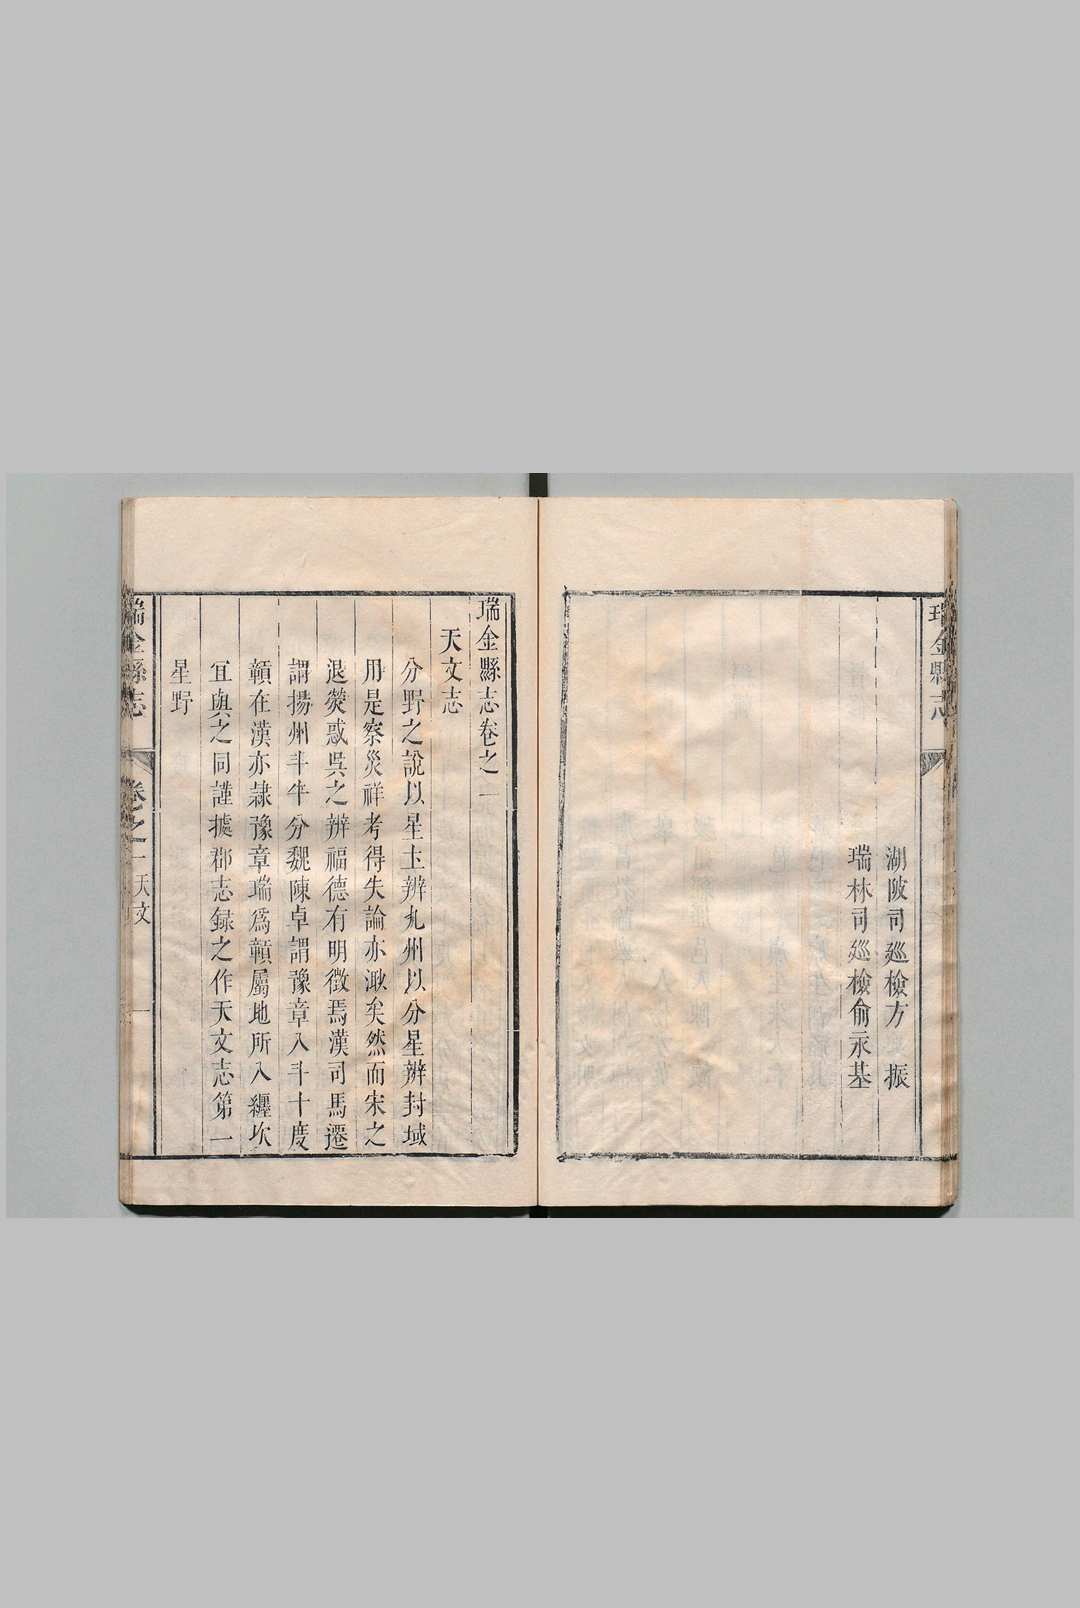 湖陂司巡檢方振
瑞林司巡檢俞永基
瑞金縣志卷之一
天文志
分野之說以星土辨九州以分星辨封域
用是察災祥考得失論亦渺矣然而宋之
退熒惑吳之辨福德有明徵焉漢司馬遷
謂揚州斗牛分魏陳卓謂豫章入斗十度
贛在漢亦隸豫章瑞為贛屬地所入纏坎
宜與之同謹據郡志録之作天文志第一
星野
瑞金縣志
卷之一
天文
一